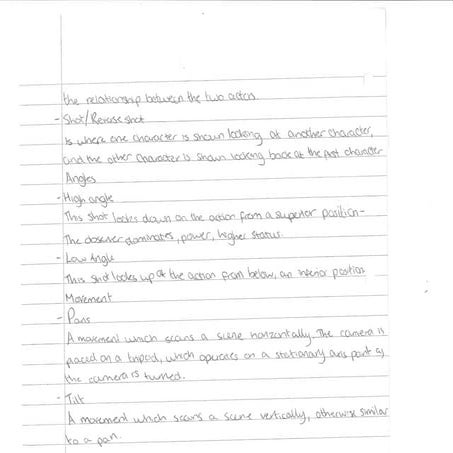 the relationship between the two actors.
- Shot/Reverse shot
Is where one character is shown looking at another character,
and the other character is shown looking back at the first character
Angles
- High angle
This shot looks down on the action from a superior position -
The observer dominates, power, higher status.
- Low Angle
This shot looks up at the action from below, an inferior position
Movement
- Pans
A movement which scans a scene horizontally. The camera is
placed on a tripod, which operates on a stationary axis point as
the camera is turned.
- Tilt
A movement which scans a scene vertically, otherwise similar
to a pan.